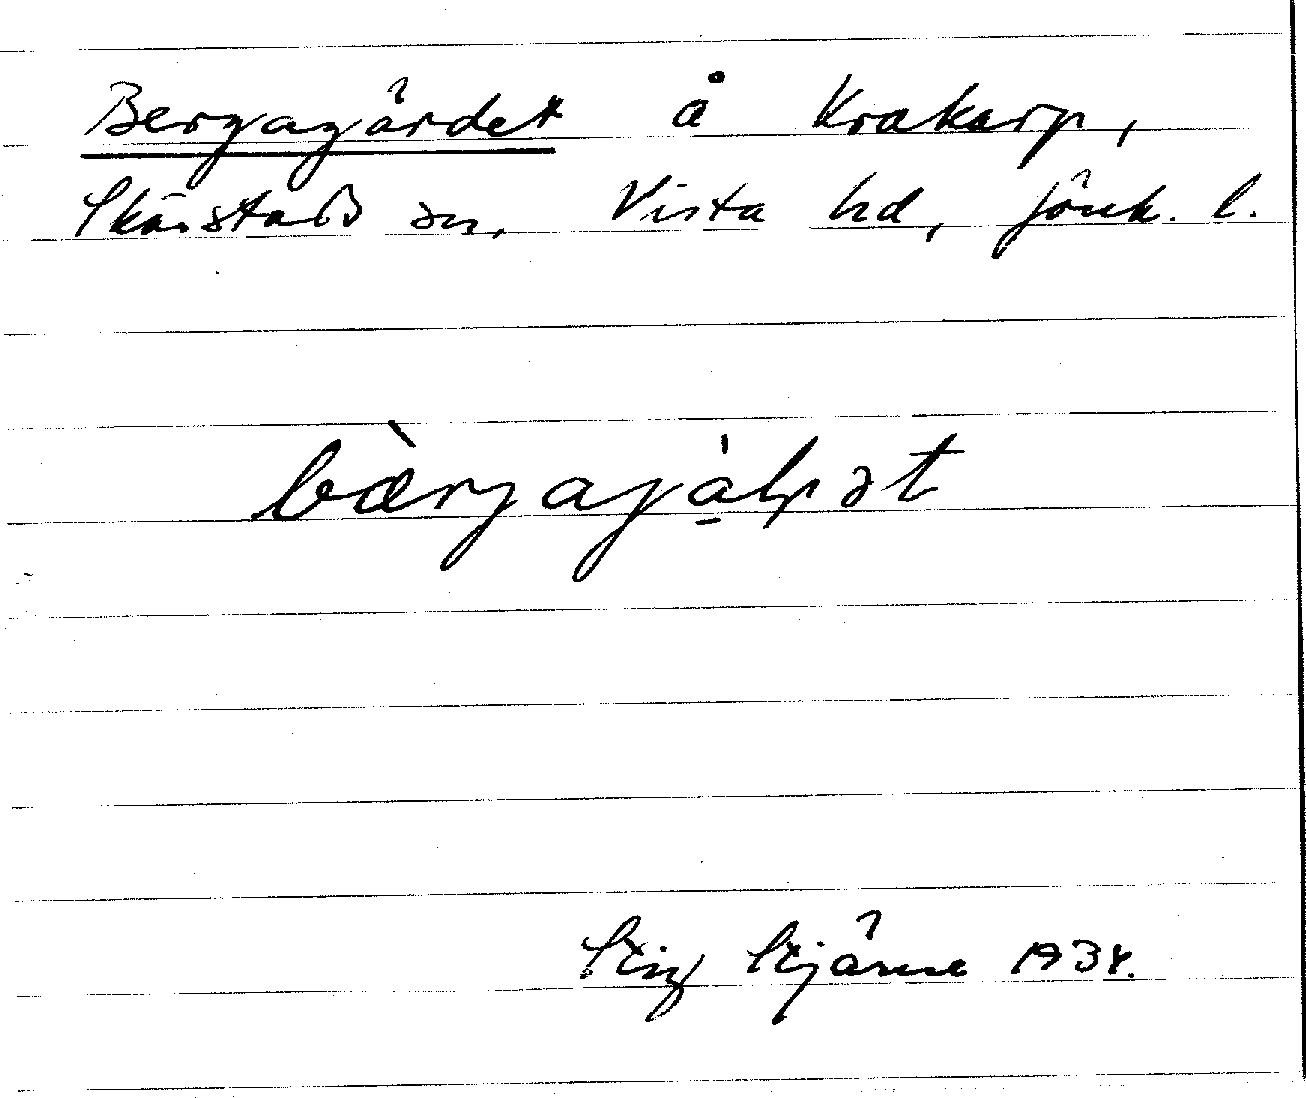 Bergagärdet å Krakarp,
Skärstads sn, Vista hd, Jönk. l.
bærjajälpət
Stig Stjärne 1934.